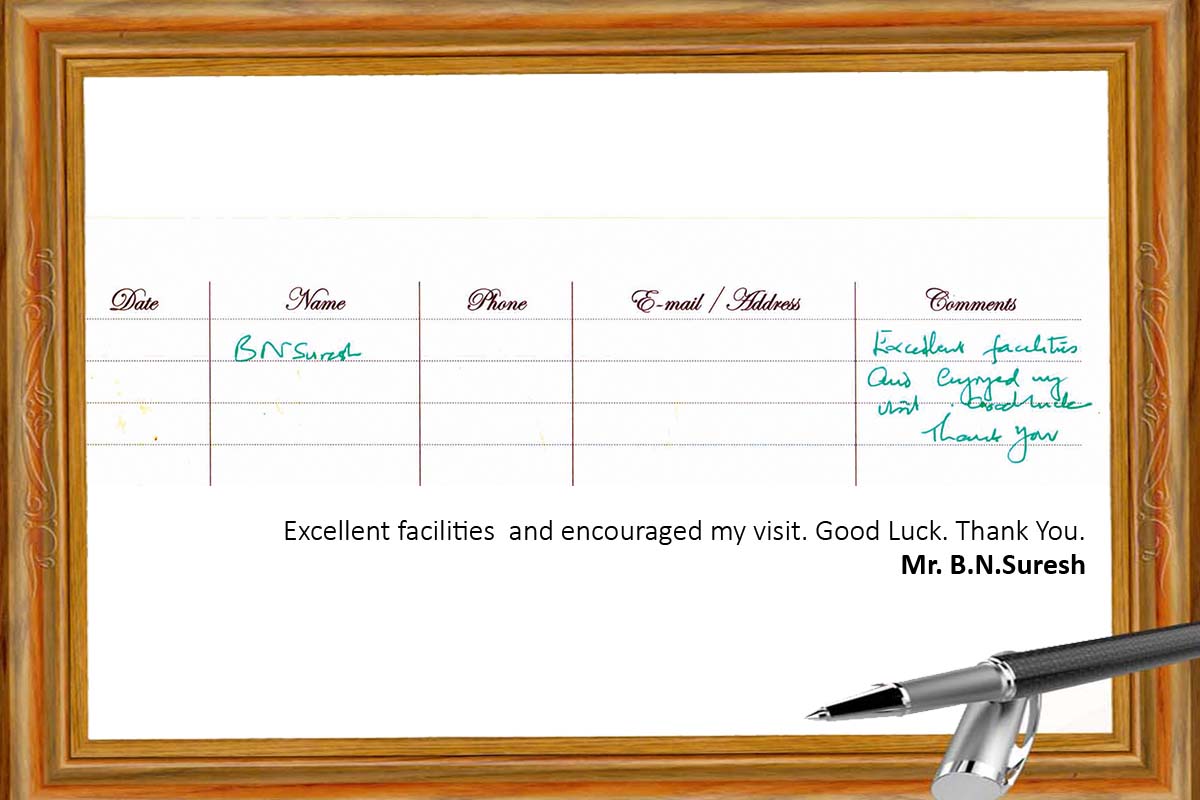 Date Name Phone E-mail / Address Comments
BNSuresh Excellent facilities
And enjoyed my
visit. Good Luck
Thank You
Excellent facilities and encouraged my visit. Good Luck. Thank You.
Mr. B.N.Suresh